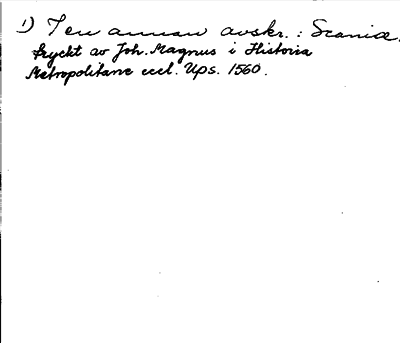 1) I en annan avskr.: Scaniæ.
Tryckt av Joh. Magnus i Historia
Metropolitane eccl. Ups. 1560.